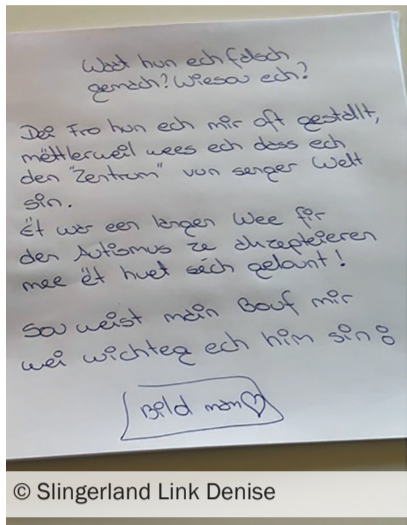 Waat hun ech falsch
gemach? Wiesou ech?
Déi Fro hun ech mir oft gestallt,
mëttlerweil wees ech dass ech
den "Zentrum" vun senger Welt
sin.
Ët war een langen Wee fir
den Autismus ze akzeptéieren
mee ët huet séch gelount!
Sou weist mäin Bouf mir
wéi wichteg ech him sin:
Bild man♡
© Slingerland Link Denise